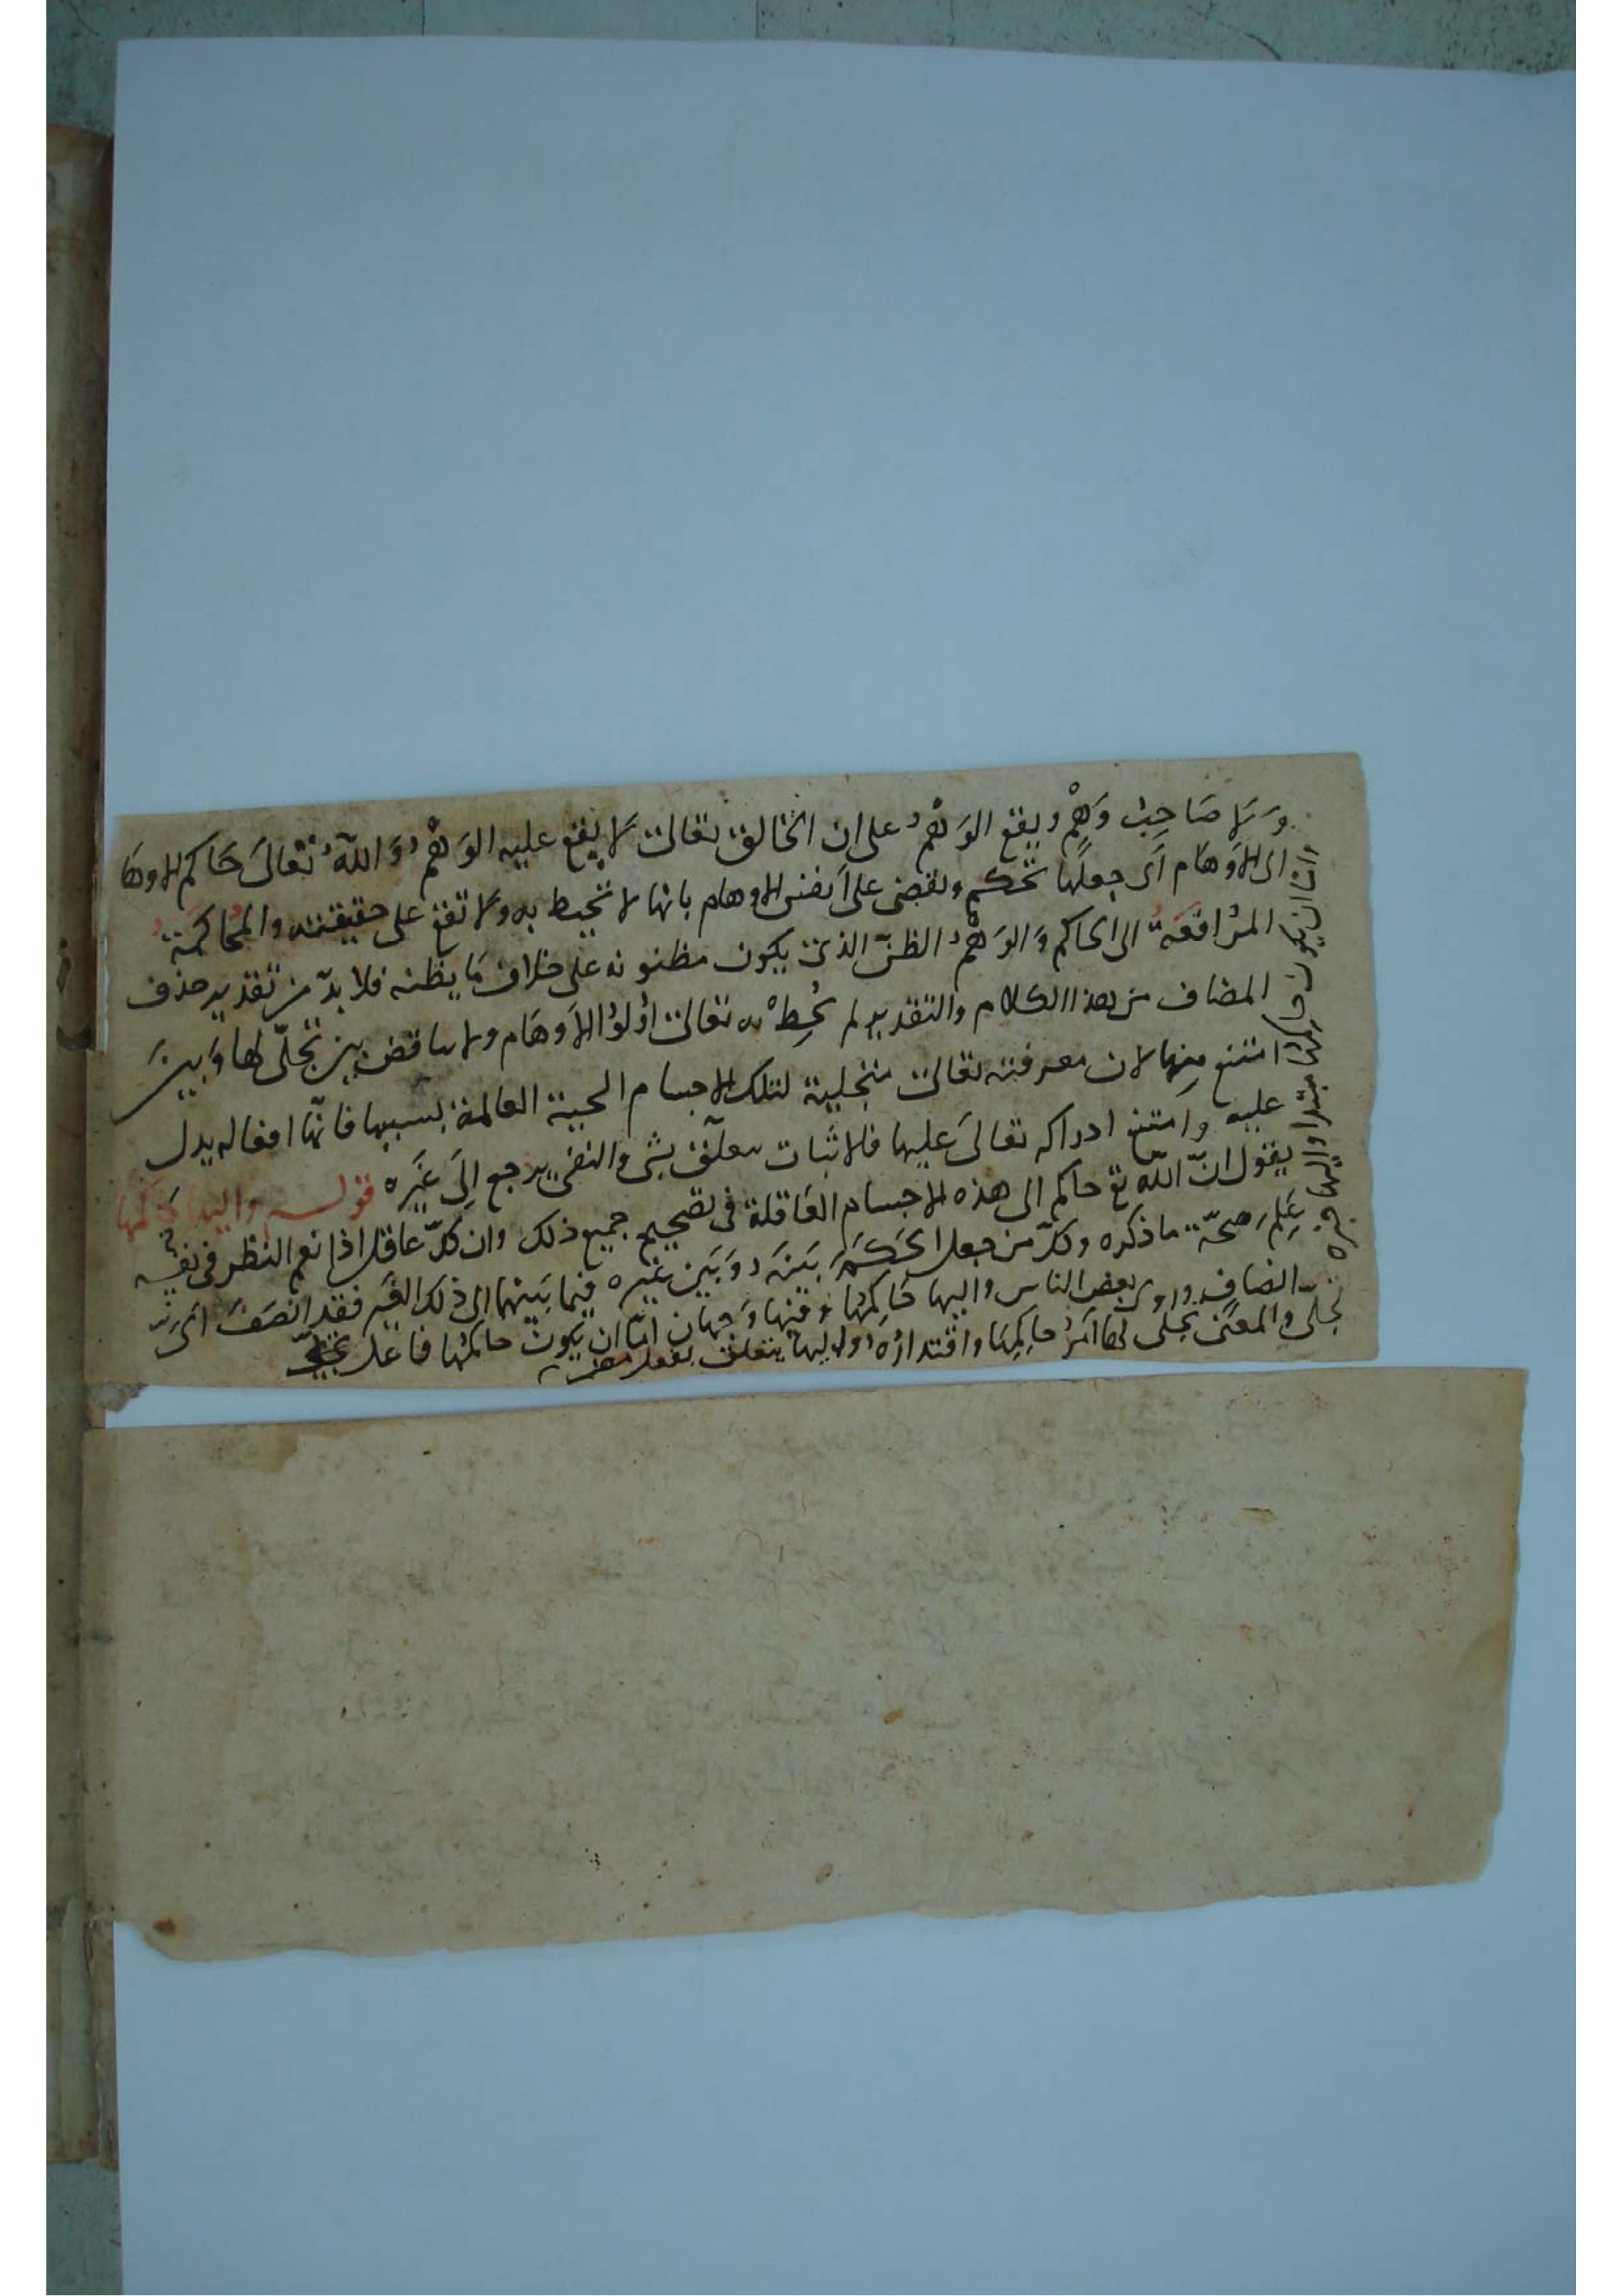 وَلا صَاحِبُ وَهْمٍ ويقع الوَهْمُ على ان الخالق تعالى لا يقع عليه الوَهْمُ وَاللّٰهُ تعَالىَ حَاكم الاوهَا
الى الاَوهَام اَى جعلَها تحكم وتقضى على اَنفس الاوهام بانها لا تحيط به ولا تقع على حقيقته والمُحاكمَةُ
المُرافَعَةُ الى الحاكم وَالوَهْمُ الظنّ الذى يكون مظنونه على خلاف مَا يظنه فلا بدّ من تقدير حذف
المضاف من هذا الكلام والتقدير لم تُحِطْ به تعالى اوُلوُا الاَوهَام ولا تناقض بين تجلّى لها وَبين
امتنع منها لان معرفته تعالى منجلية لتلك الاجسام الحيية العالمة بسببها فانّها افعاله يدل
عليه وامتنع ادراكه تعالىَ عليها فالاثبات تعلّق بشى والنفى يرجع اِلىَ غَيره قولـه واليها حَاكمَها
يقول انّ اللّه تع حاكم الى هذه الاجسام العَاقلة فى تصحيح جميع ذلك وان كلّ عاقل اذا انعم النظر فى نفسه
عَلِمَ صحّة ما ذكره وكلّ من جعل الحَكَمَ بَينَه وَبَين غيره فيما بَينهما الى ذلك الغَير فقد انصَفَ اىَّ
انصاف وروى بعض الناس واليها حَاكِمُها وفيها وَجهان امّا ان يكون حاكمُها فاعل تجلى
تجلّى والمعنى تجلى لها اَمرُ حاكِمِها واقتدارُه واليها يتعلق بفعل مضمر
واما ان يكون حاكمُها مبتدا واليها خبره